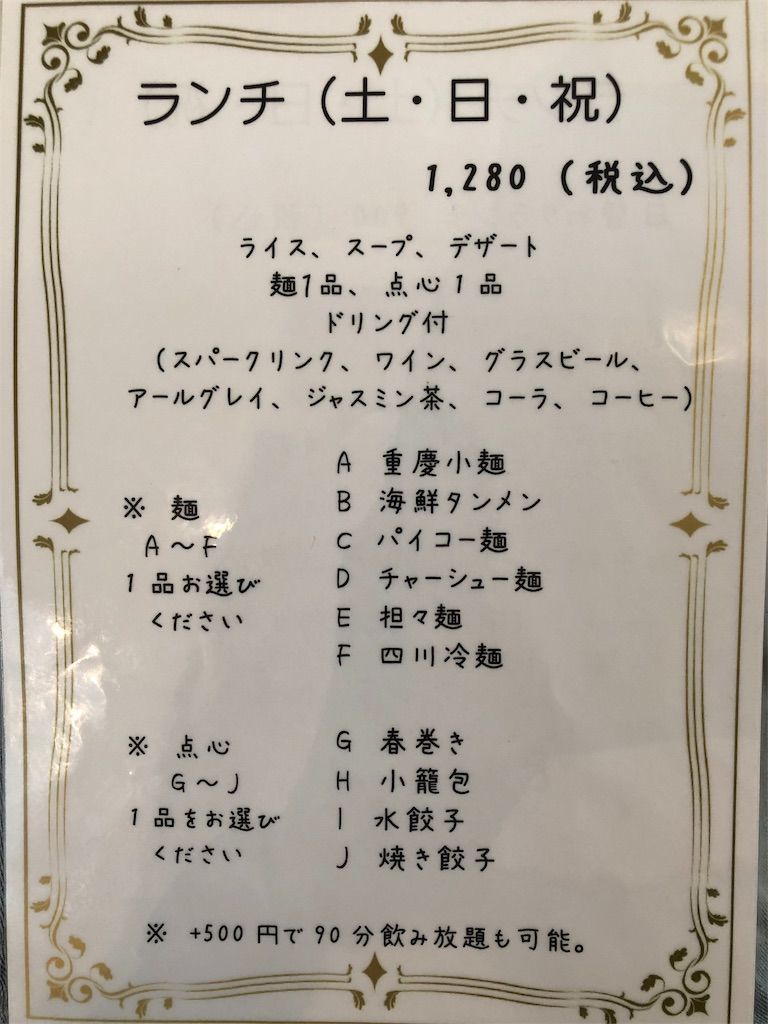 ランチ（土・日・祝）
1,280（税込）
ライス、スープ、デザート
麺1品、点心1品
ドリング付
（スパークリンク、ワイン、グラスビール、
アールグレイ、ジャスミン茶、コーラ、コーヒー）
※ 麺
A〜F
1品お選び
ください
A 重慶小麺
B 海鮮タンメン
C パイコー麺
D チャーシュー麺
E 担々麺
F 四川冷麺
※ 点心
G〜J
1品をお選び
ください
G 春巻き
H 小籠包
I 水餃子
J 焼き餃子
※ +500円で90分飲み放題も可能。